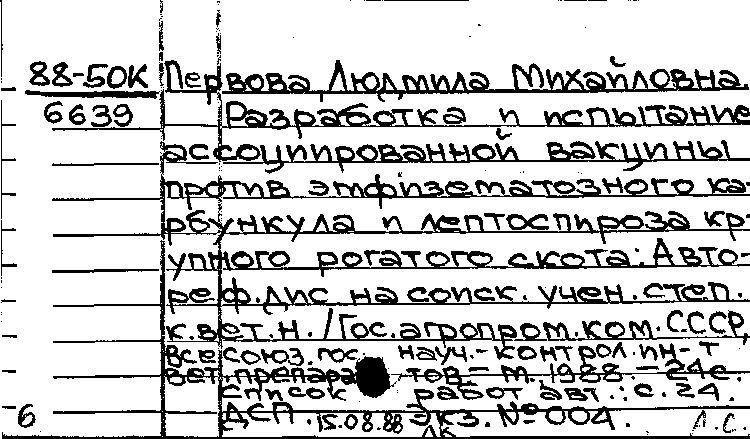 88-50К Первова, Людмила Михайловна.
6639 Разработка и испытание
ассоциированной вакцины
против эмфизематозного ка-
рбункула и лептоспироза кр.
упного рогатого скота: Авто-
реф. дис. на соиск. учен. степ.
к. вет. н. / Гос. агропром. ком. СССР,
Всесоюз. гос. науч.-контрол. ин-т
вет. препаратов.- М., 1988. - 24с.
Список работ авт.: с. 24.
6 ДСП. 15.08.88 Экз. № 004. Л.С.
ЛК